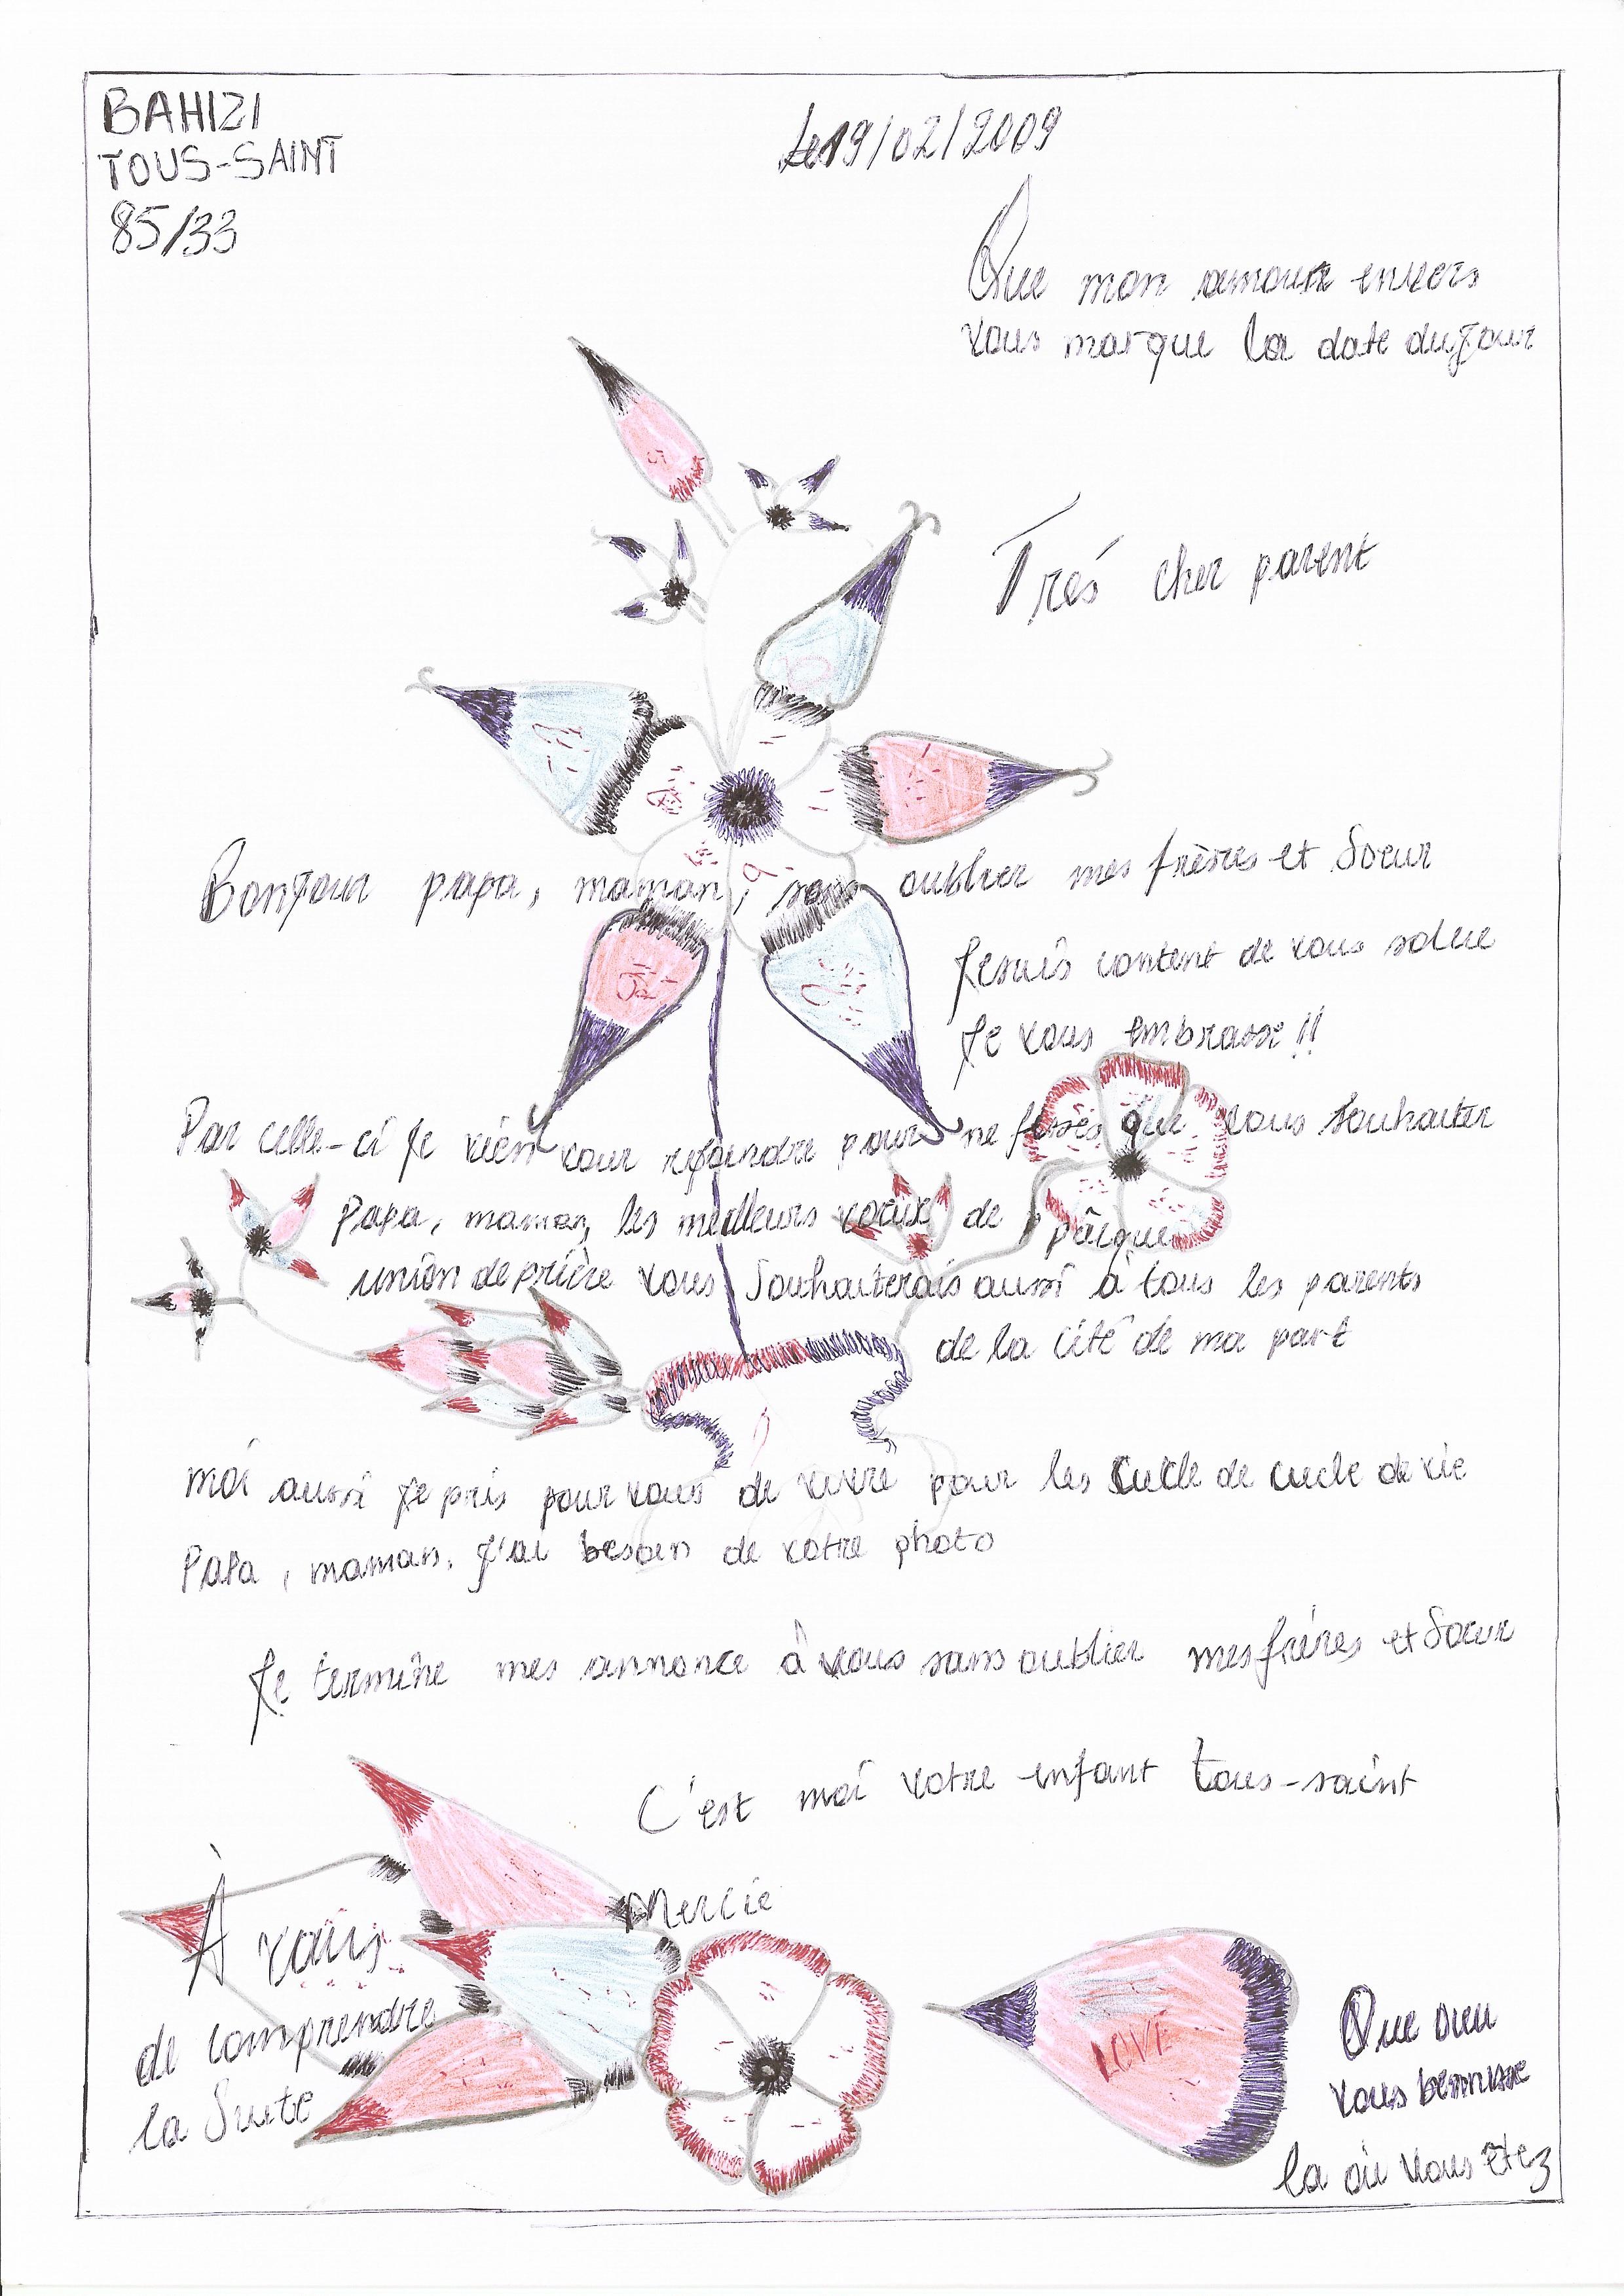 BAHIZI
TOUS-SAINT
85/33
Le 19/02/2009
Que mon amour envers
vous marque la date du Jour
Trés cher parent
BonJour papa, maman, sans oublier mes frères et Soeur
Je suis content de vous salue
Je vous embrasse !!
Par celle-ci Je vien vour rejoindre pour ne que vous Souhaiter
Papa, maman, les meilleurs voeux de pâque
union de prière vous Souhaiterais aussi à tous les parents
de la cité de ma part
moi aussi Je pris pour vous de vivre pour les de de vie
PaPa, maman, J'ai besoin de votre photo
Je termine mes annonce à vous sans oublier mes fréres et Soeur
C'est moi votre enfant tous-saint
Mercie
À vous
de comprendre
la Suite
LOVE
Que dieu
vous bennisse
la où vous êtez